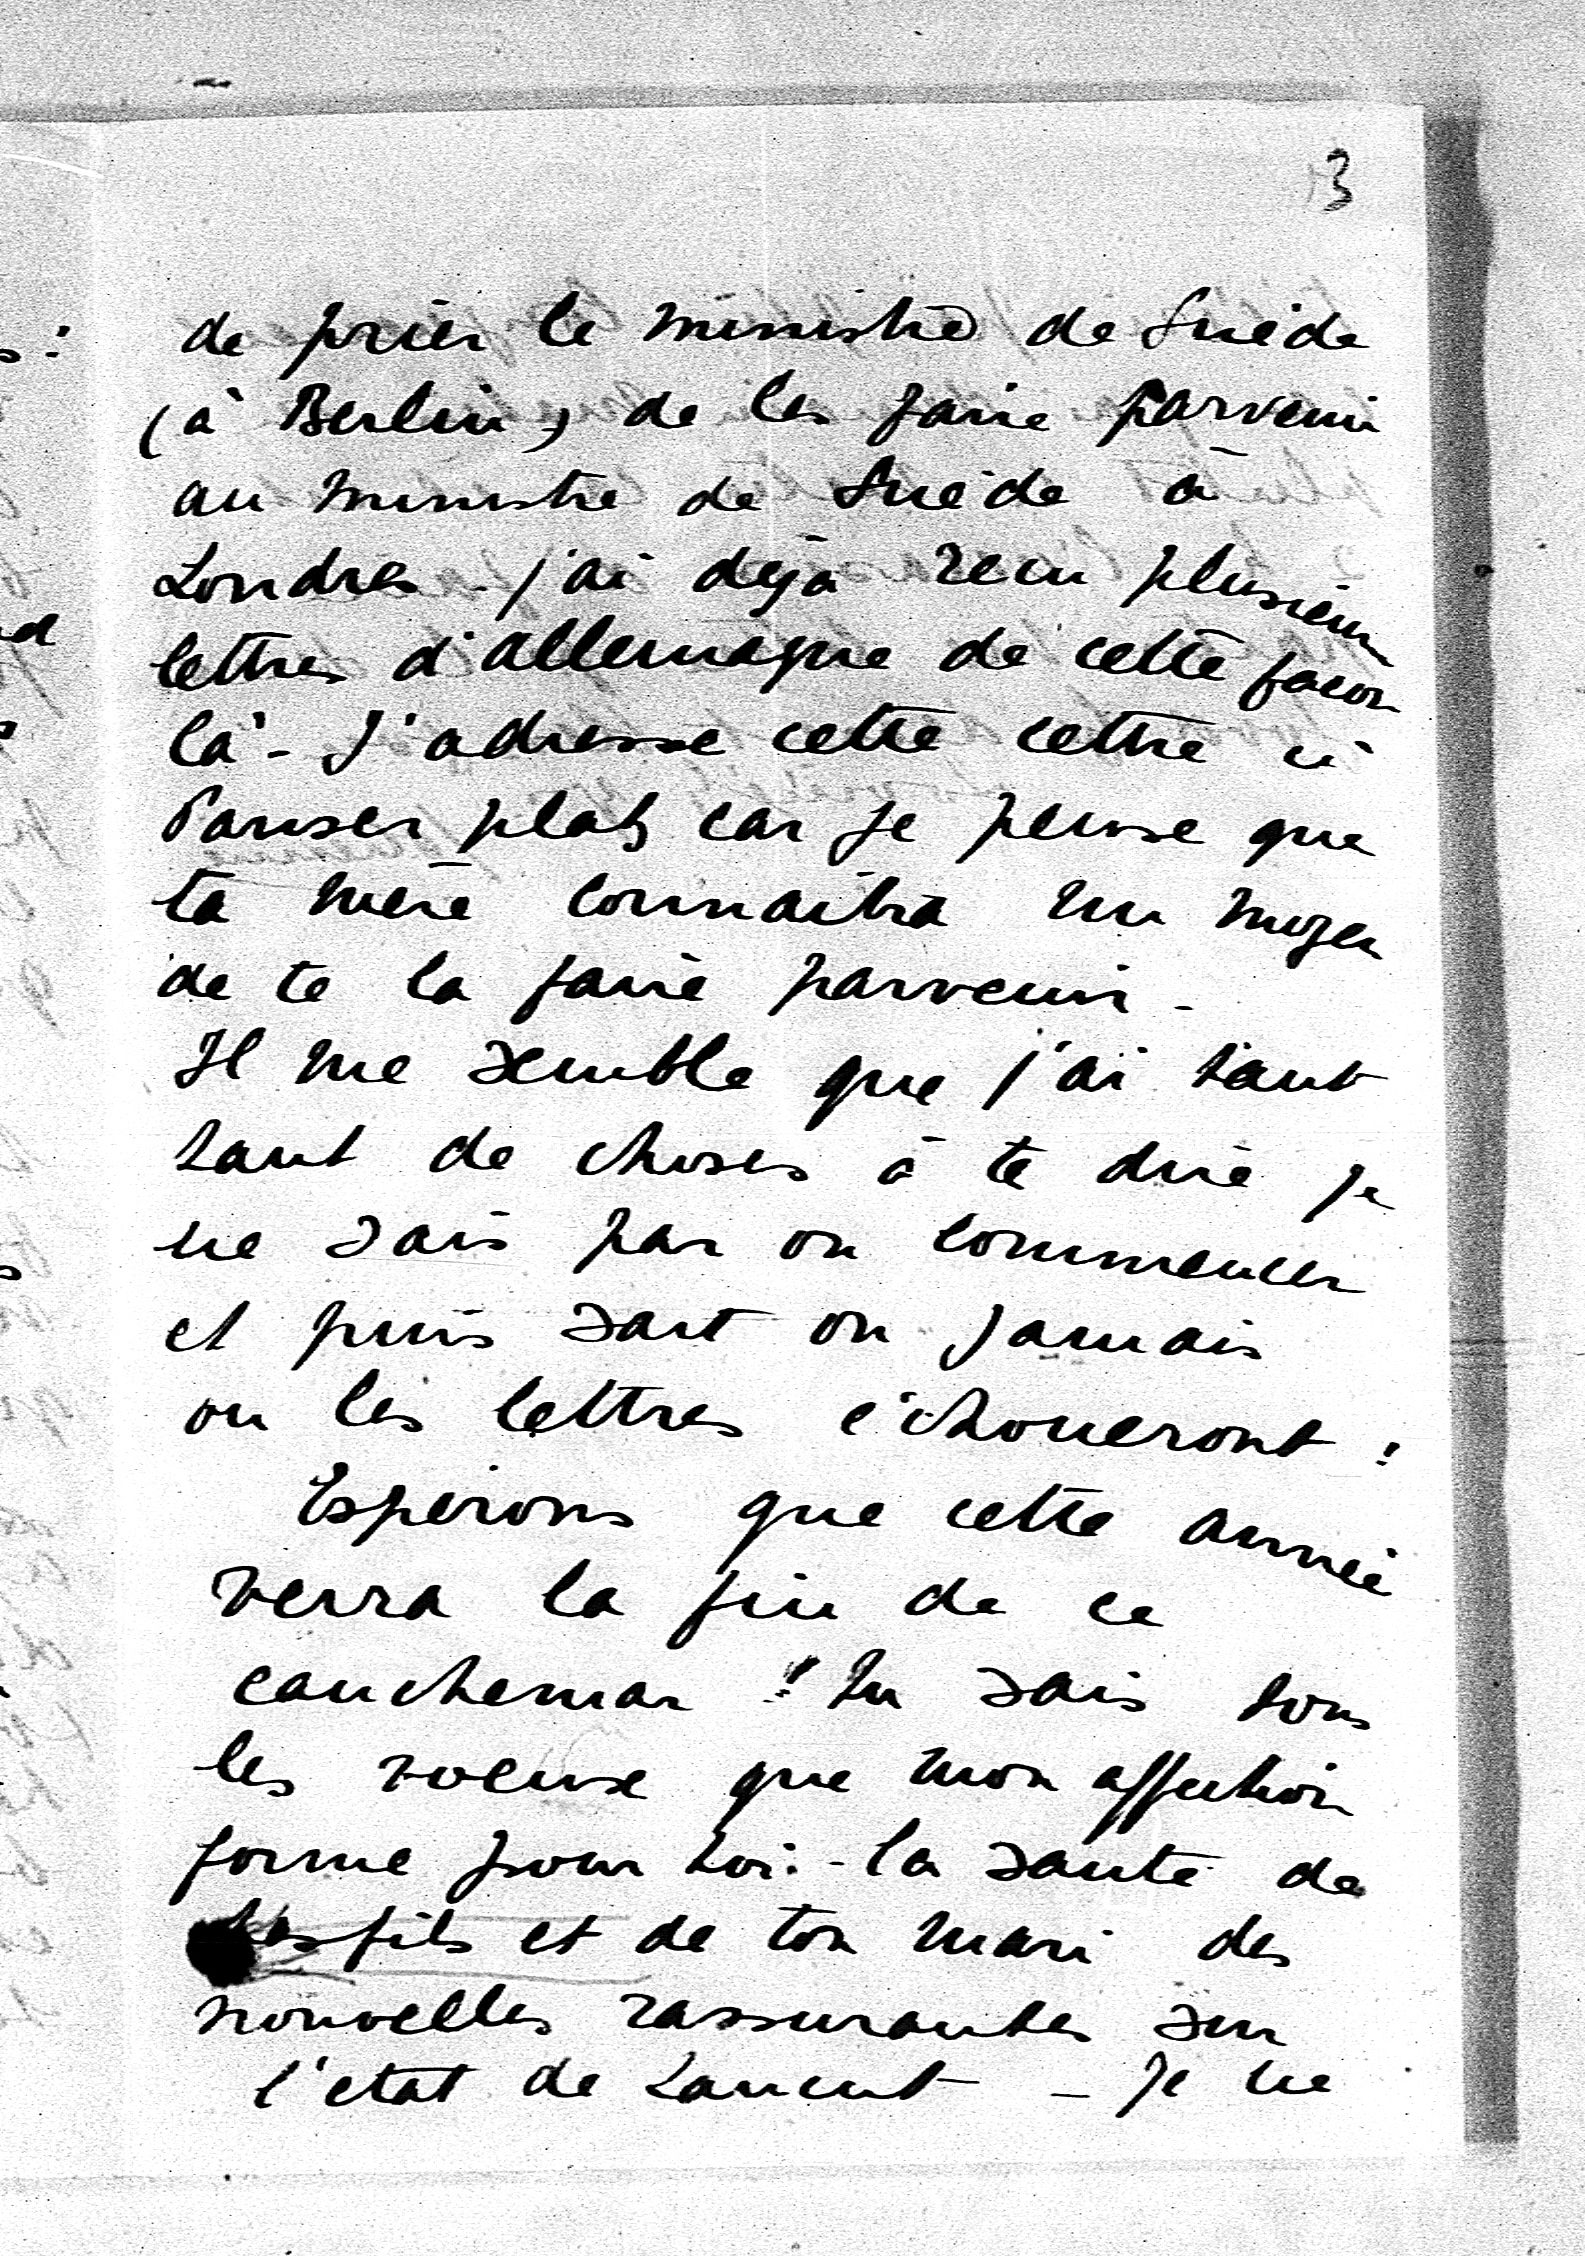 3
de prier le ministre de Suède
(à Berlin) de les faire parvenir
au ministre de Suède à
Londres. j'ai dejà recu plusieurs
lettres d'allemagne de cette facon
là - J'adresse cette lettre à
Pariser platz car je pense que
ta mère connaitra un moyen
de te la faire parvenir -
Il me semble que j'ai tant
tant de choses à te dire je
ne sais par ou commencer
et puis sait on jamais
ou les lettres échoueront !
Esperons que cette année
verra la fin de ce
cauchemar ! Tu sais tous
les voeux que mon affection
forme pour toi. - la santé de
tes fils et de ton mari des
nouvelles rassurantes sur
l'etat de - Je ne